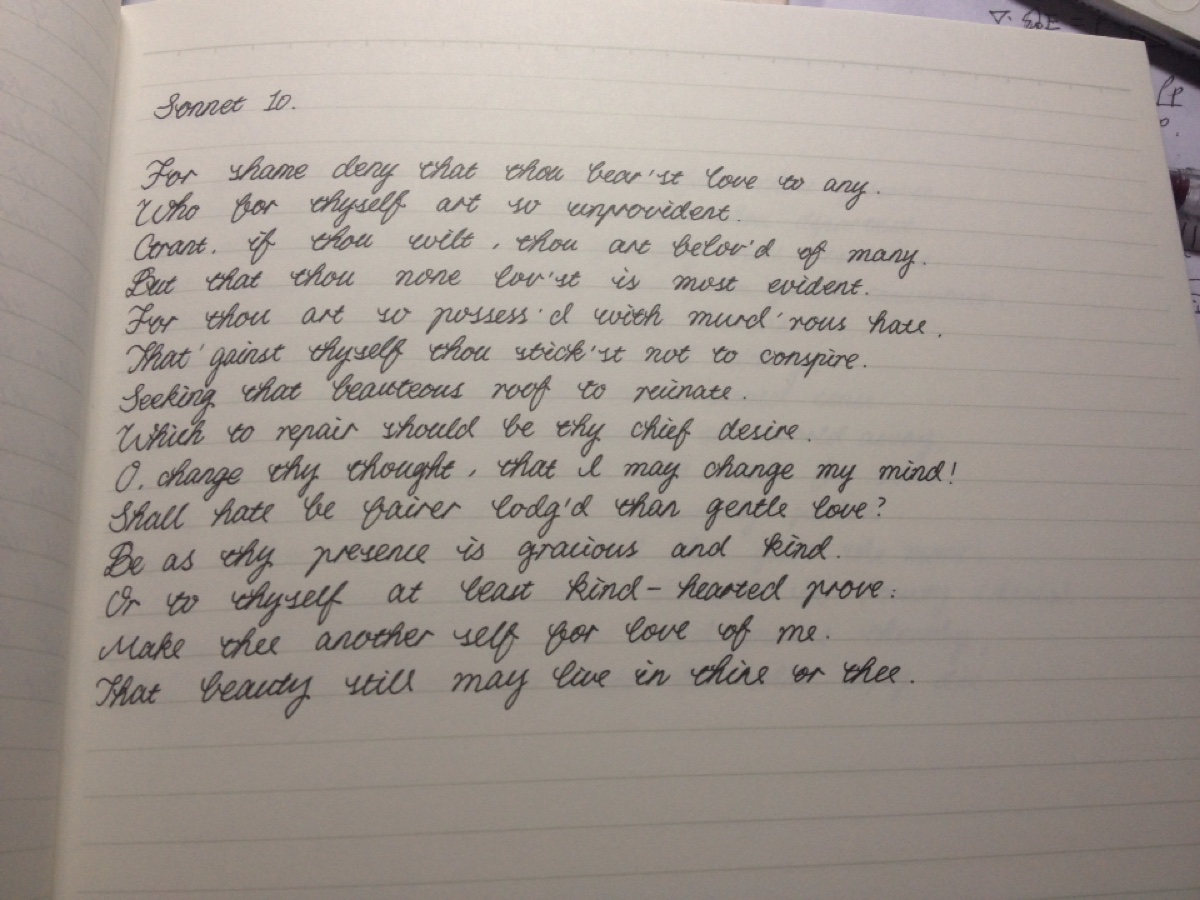 Sonnet 10.
For shame deny that thou bear'st love to any.
Who for thyself art so unprovident.
Grant. if thou wilt, thou art belov'd of many.
But that thou none lov'st is most evident.
For thou art so possess'd with murd'rous hate.
That 'gainst thyself thou stick'st not to conspire.
Seeking that beauteous roof to ruinate.
Which to repair should be thy chief desire.
O. change thy thought, that I may change my mind!
Shall hate be fairer lodg'd than gentle love?
Be as thy presence is gracious and kind.
Or to thyself at least kind-hearted prove:
Make thee another self for love of me.
That beauty still may live in thine or thee.
∇·ε₀E =